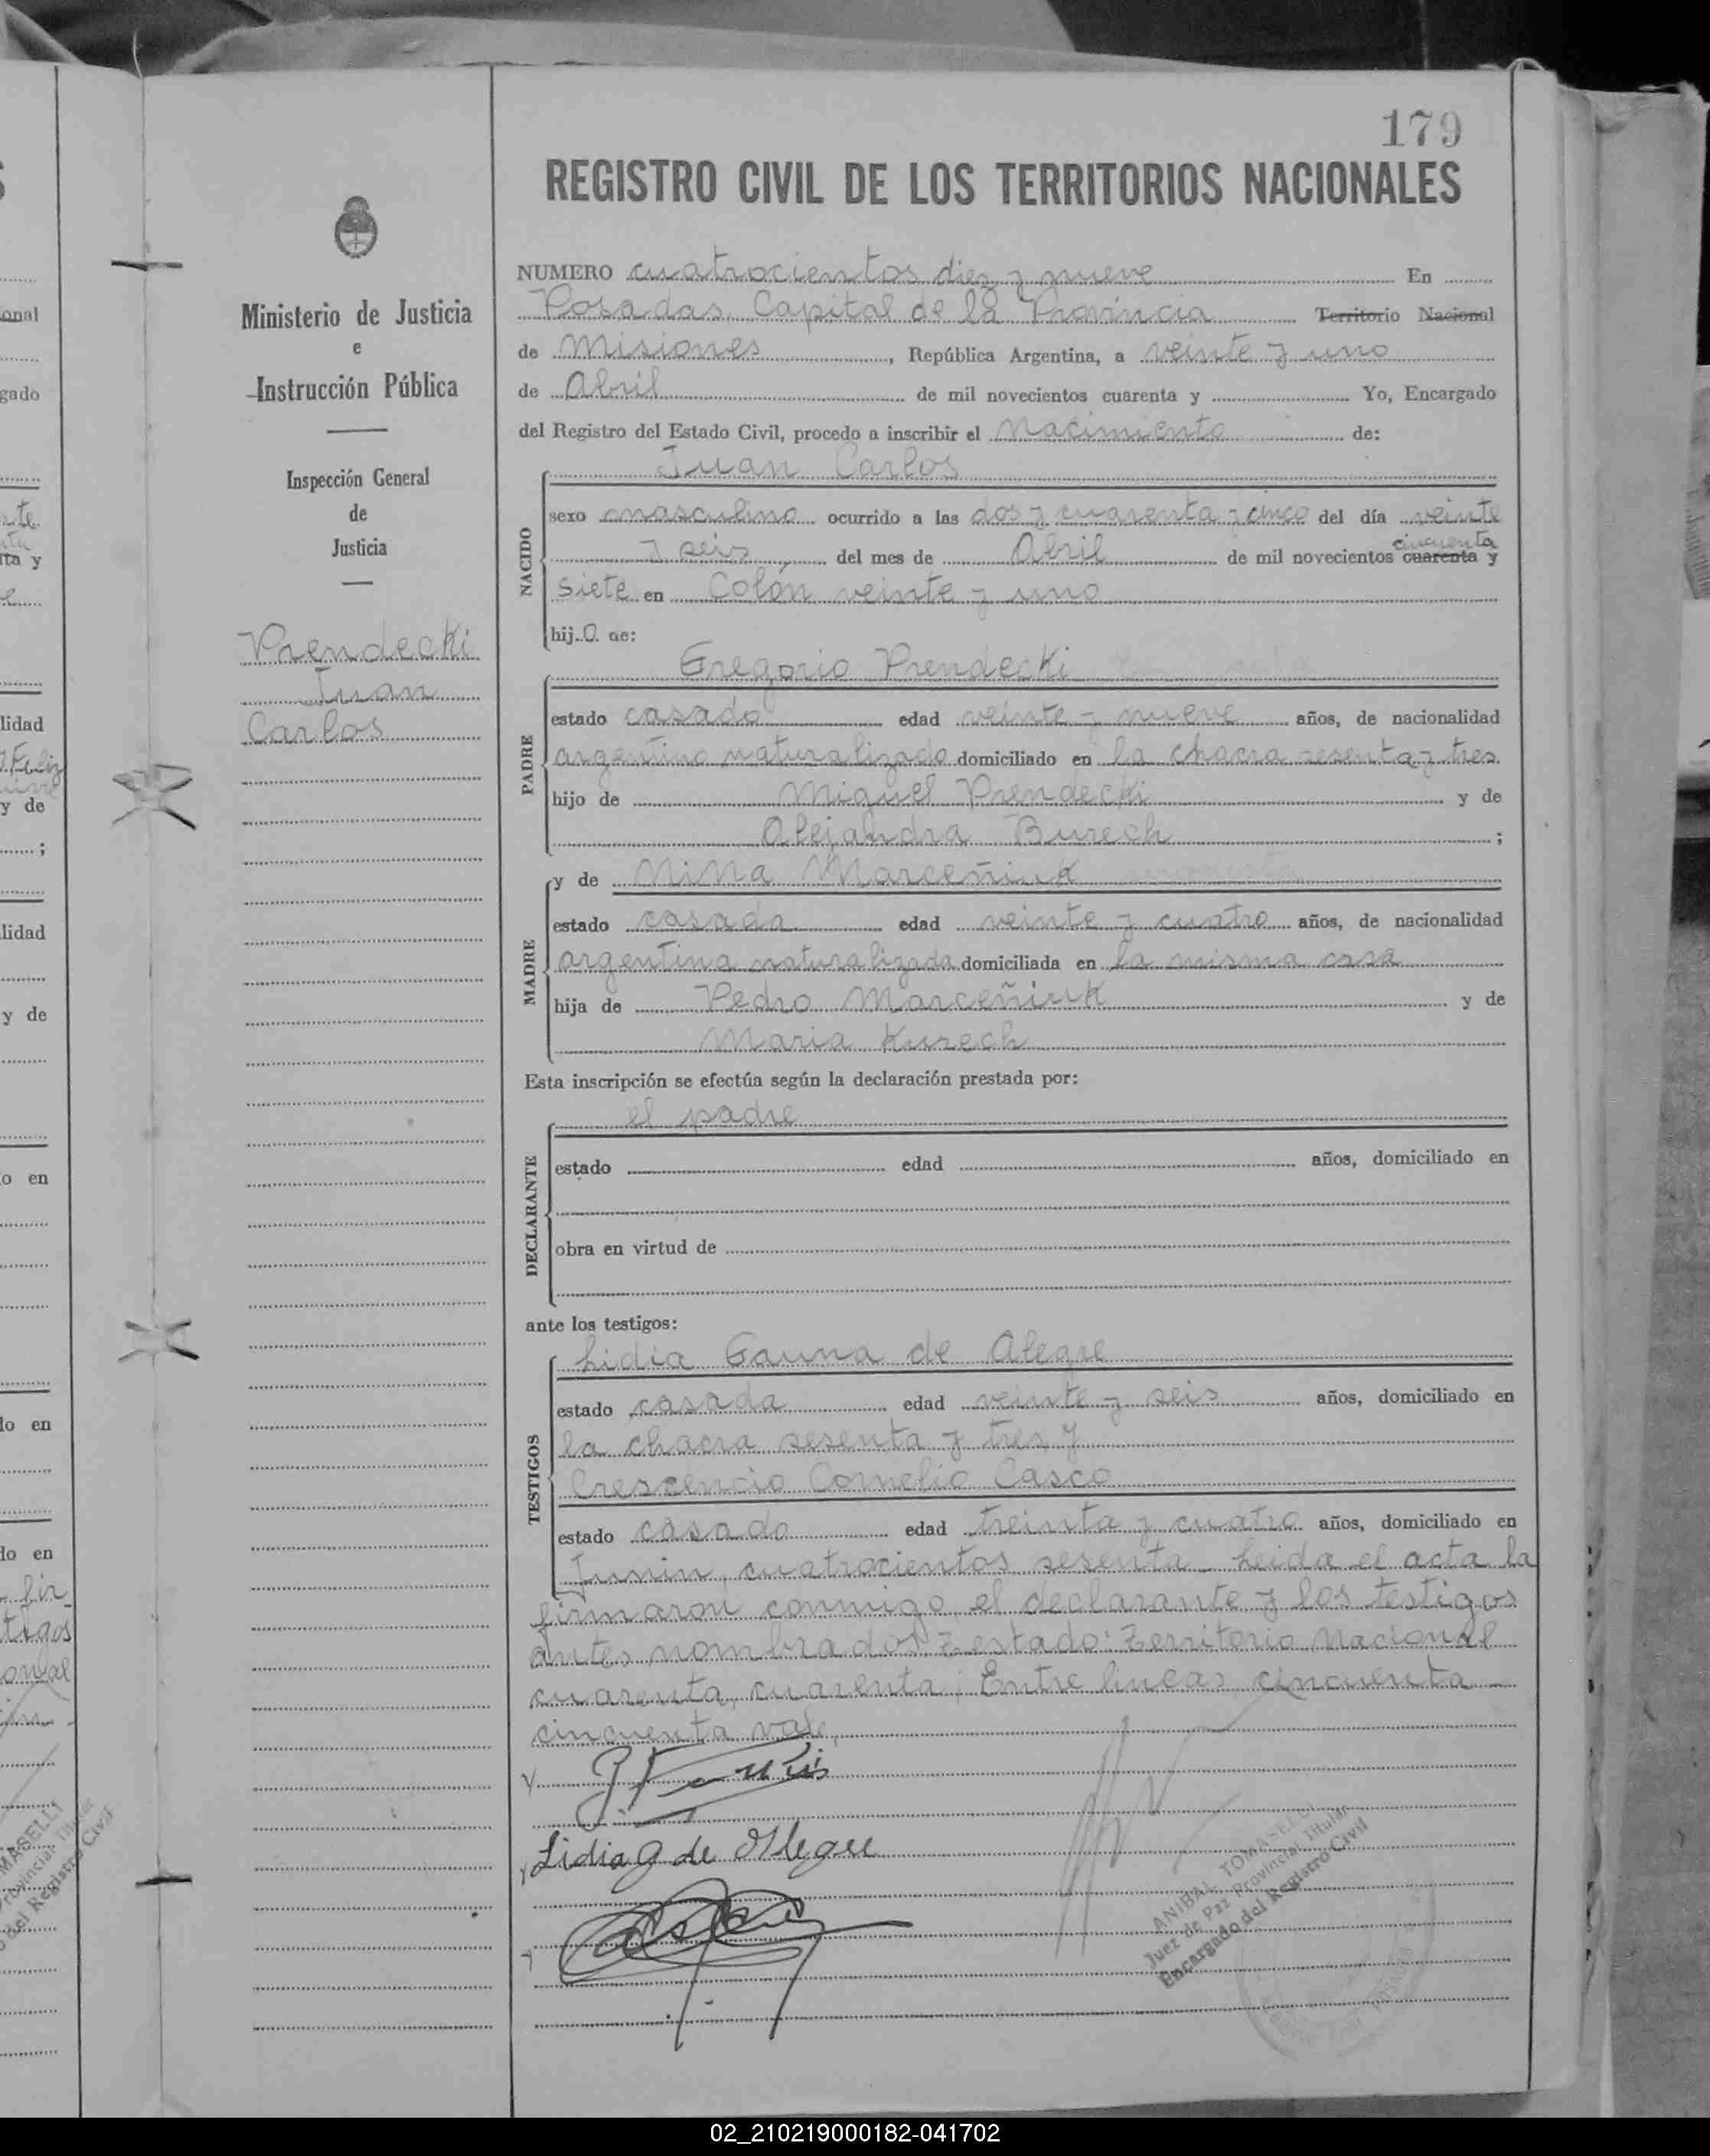 179
REGISTRO CIVIL DE LOS TERRITORIOS NACIONALES
Ministerio de Justicia
e
Instrucción Pública
Inspección General
de
Justicia
Prendecki
Juan
Carlos
NUMERO cuatrocientos diez y nueve En
Posadas, Capital de la Provincia Territorio Nacional
de Misiones, República Argentina, a veinte y uno
de Abril de mil novecientos cuarenta y Yo, Encargado
del Registro del Estado Civil, procedo a inscribir el Nacimiento de:
Juan Carlos
NACIDO
sexo masculino ocurrido a las dos y cuarenta y cinco del día veinte
cincuenta
y seis del mes de Abril de mil novecientos cuarenta y
siete en Colón veinte y uno
hijo de:
Gregorio Prendecki
PADRE
estado casado edad veinte y nueve años, de nacionalidad
argentino naturalizado domiciliado en la chacra sesenta y tres
hijo de Miguel Prendecki y de
Alejandra Burech ;
y de Nina Marceñiuk
MADRE
estado casada edad veinte y cuatro años, de nacionalidad
argentina naturalizada domiciliada en la misma casa
hija de Pedro Marceñiuk y de
Maria Kurech
Esta inscripción se efectúa según la declaración prestada por:
el padre
DECLARANTE
estado edad años, domiciliado en
obra en virtud de
ante los testigos:
Lidia Gauna de Alegre
TESTIGOS
estado casada edad veinte y seis años, domiciliado en
la chacra sesenta y tres y
Crescencio Cornelio Casco
estado casado edad treinta y cuatro años, domiciliado en
Junin, cuatrocientos sesenta - Leida el acta la
firmaron conmigo, el declarante y los testigos
antes nombrados Testado: Territorio Nacional
cuarenta, cuarenta; Entre lineas, cincuenta
cincuenta vale,
Lidia G de Alegre
ANIBAL TOMASELLI
Juez de Paz Provincial Titular
Encargado del Registro Civil
02_210219000182-041702